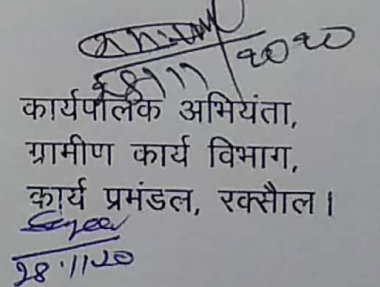 28/11/2020
कार्यपालक अभियंता,
ग्रामीण कार्य विभाग,
कार्य प्रमंडल, रक्सौल।
28.11.20